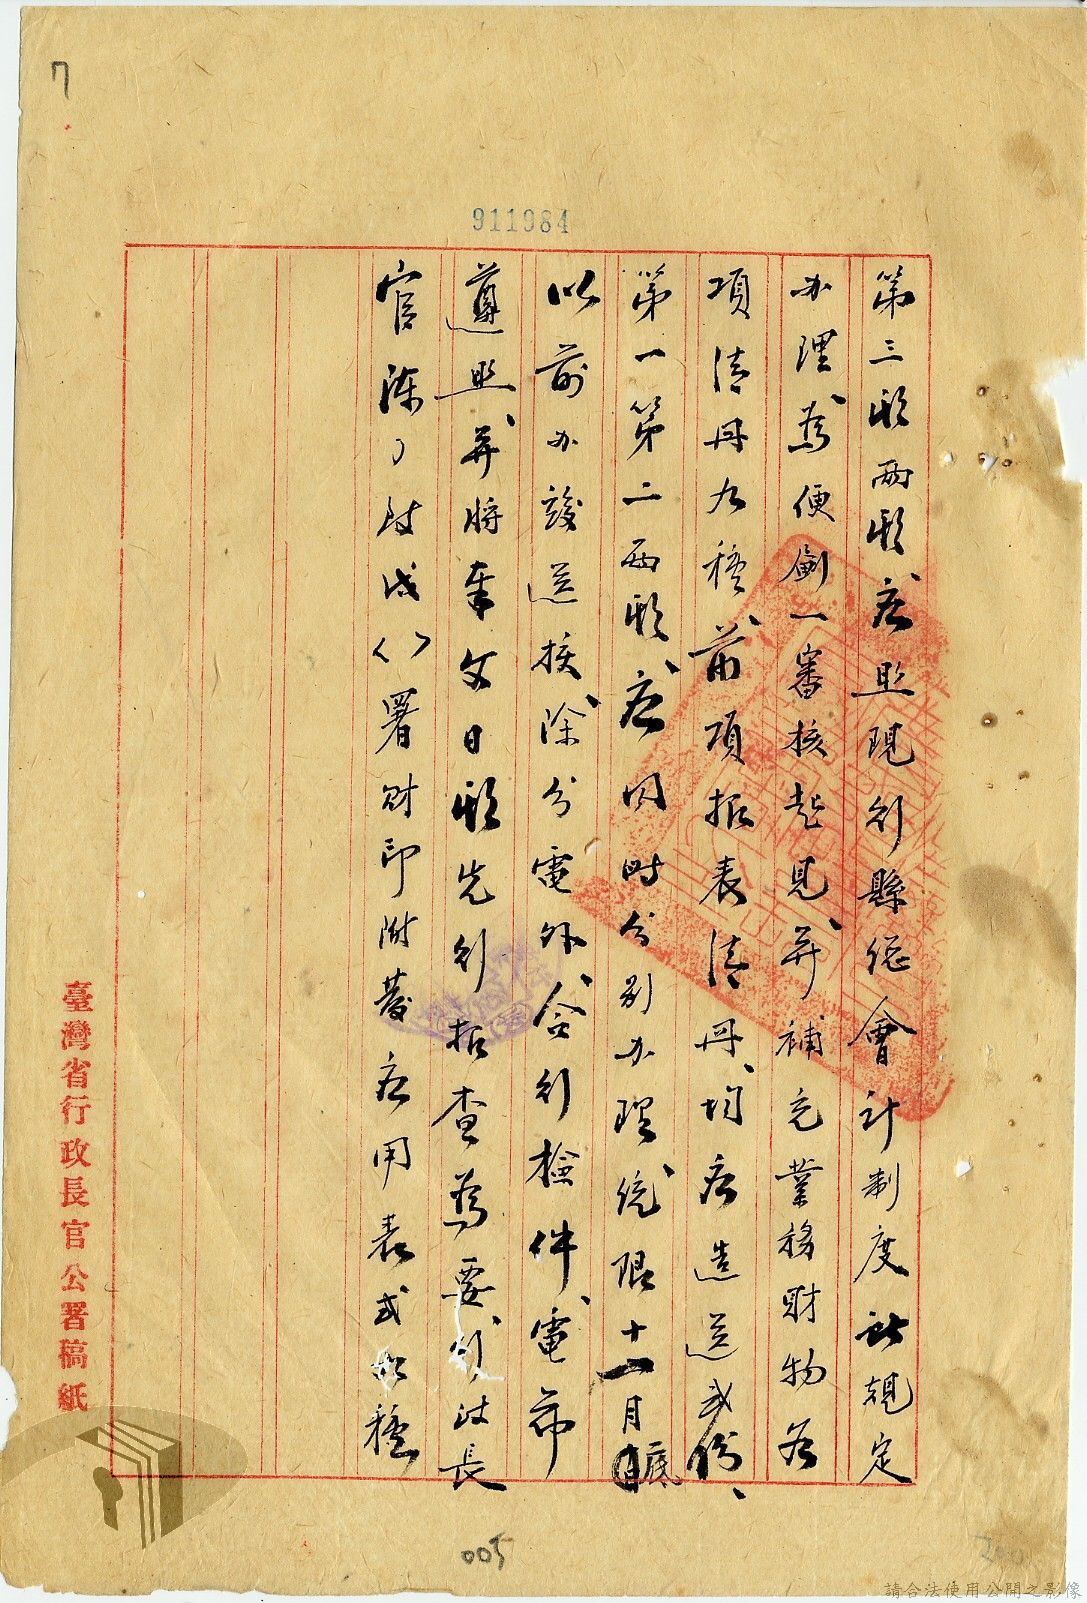 7
911984
第三聯兩聯應照現行縣總會計制度所規定
办理、為便劃一審核起見、并補充業務財物各
項清册九種、前項报表清册、均应造送弍份、
第一第二两聯、应同时分别办理、統限十一月底
以前办竣送核、除分電外、合行檢件、電希
遵照、并將奉文日期先行报查為要、行政長
官陳 署財印附發应用表式如種
臺灣省行政長官公署稿紙
005
200
請合法使用公開之影像